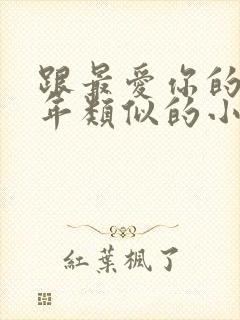 跟最愛你的
年類似的小
紅葉楓了